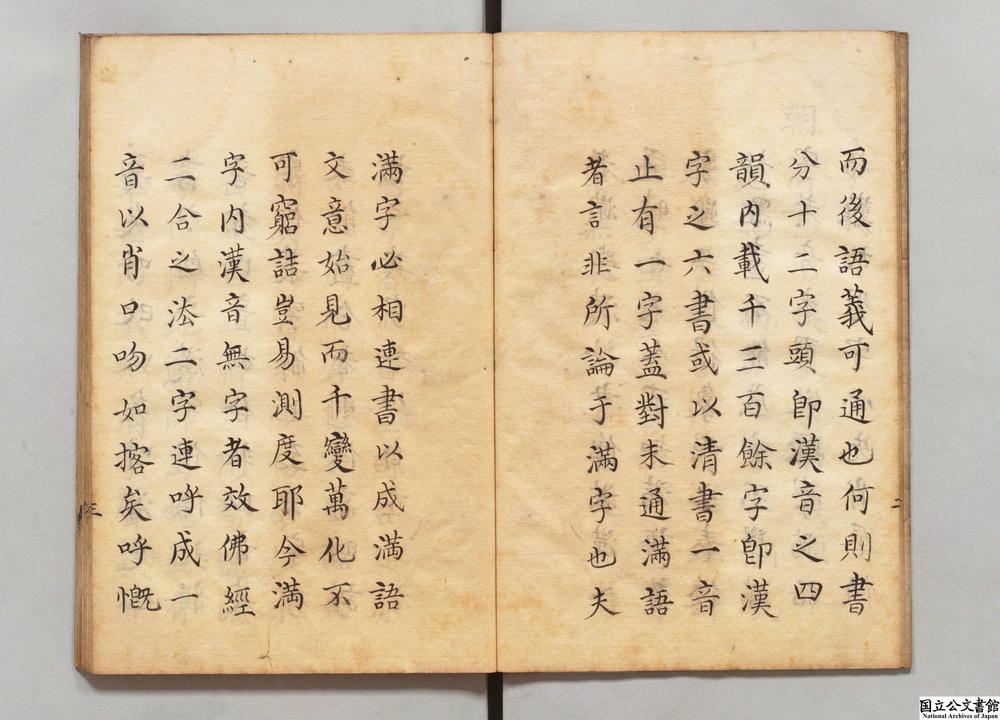 而後語義可通也何則書
分十二字頭卽漢音之四
韻內載千三百餘字卽漢
字之六書或以清書一音
止有一字蓋對未通滿語
者言非所論于滿字也夫
二
滿字必相連書以成滿語
文意始見而千變萬化不
可窮詰豈易測度耶今滿
字內漢音無字者效佛經
二合之法二字連呼成一
音以肖口吻如揢矣呼慨
三
国立公文書館
National Archives of Japan